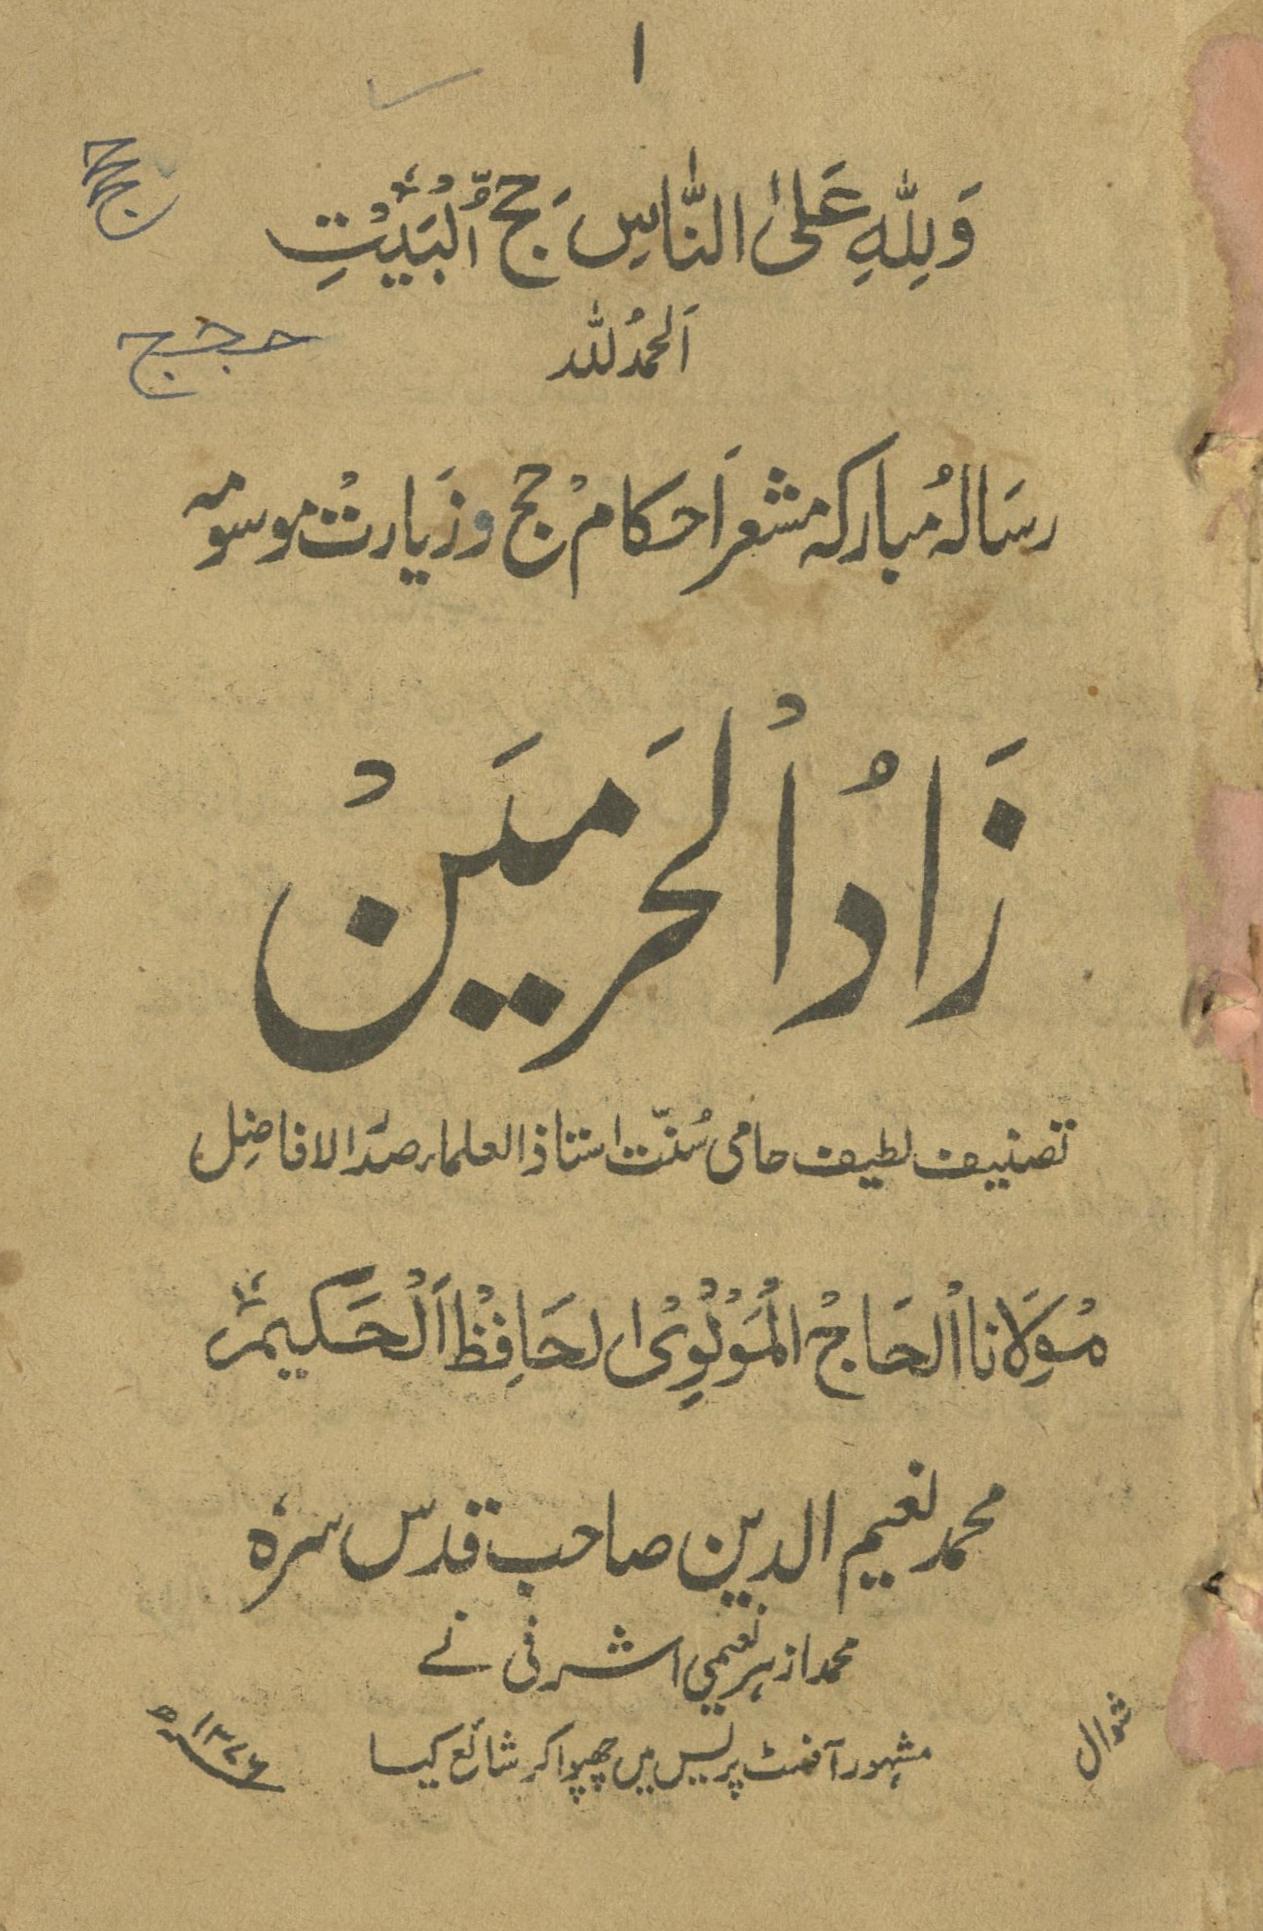 ۱
وَلِلّٰهِ عَلَى النَّاسِ حَجُّ الْبَيْتِ
حج
اَلحمدُ للّٰہ
حجج
رسَالہُ مبارکہ مشعر اَحکامْ حج و زَیارتْ موسومہ
زَادُ الْحَرَمَیَنْ
تصنیف لطیف حامی سُنّت استاذ العلماء صدر الافاضِل
مْولَانا اْلحَاجْ الْمَوْلْوِیْ الحَافِظْ اَلْحَکیمْ
محمد نعیم الدین صاحب قدس سرہٗ
محمد ازہر نعیمی اشرفی نے
مشہور آفسٹ پریس میں چھپوا کر شائع کیا
شوال
۱۳۷۶ھ